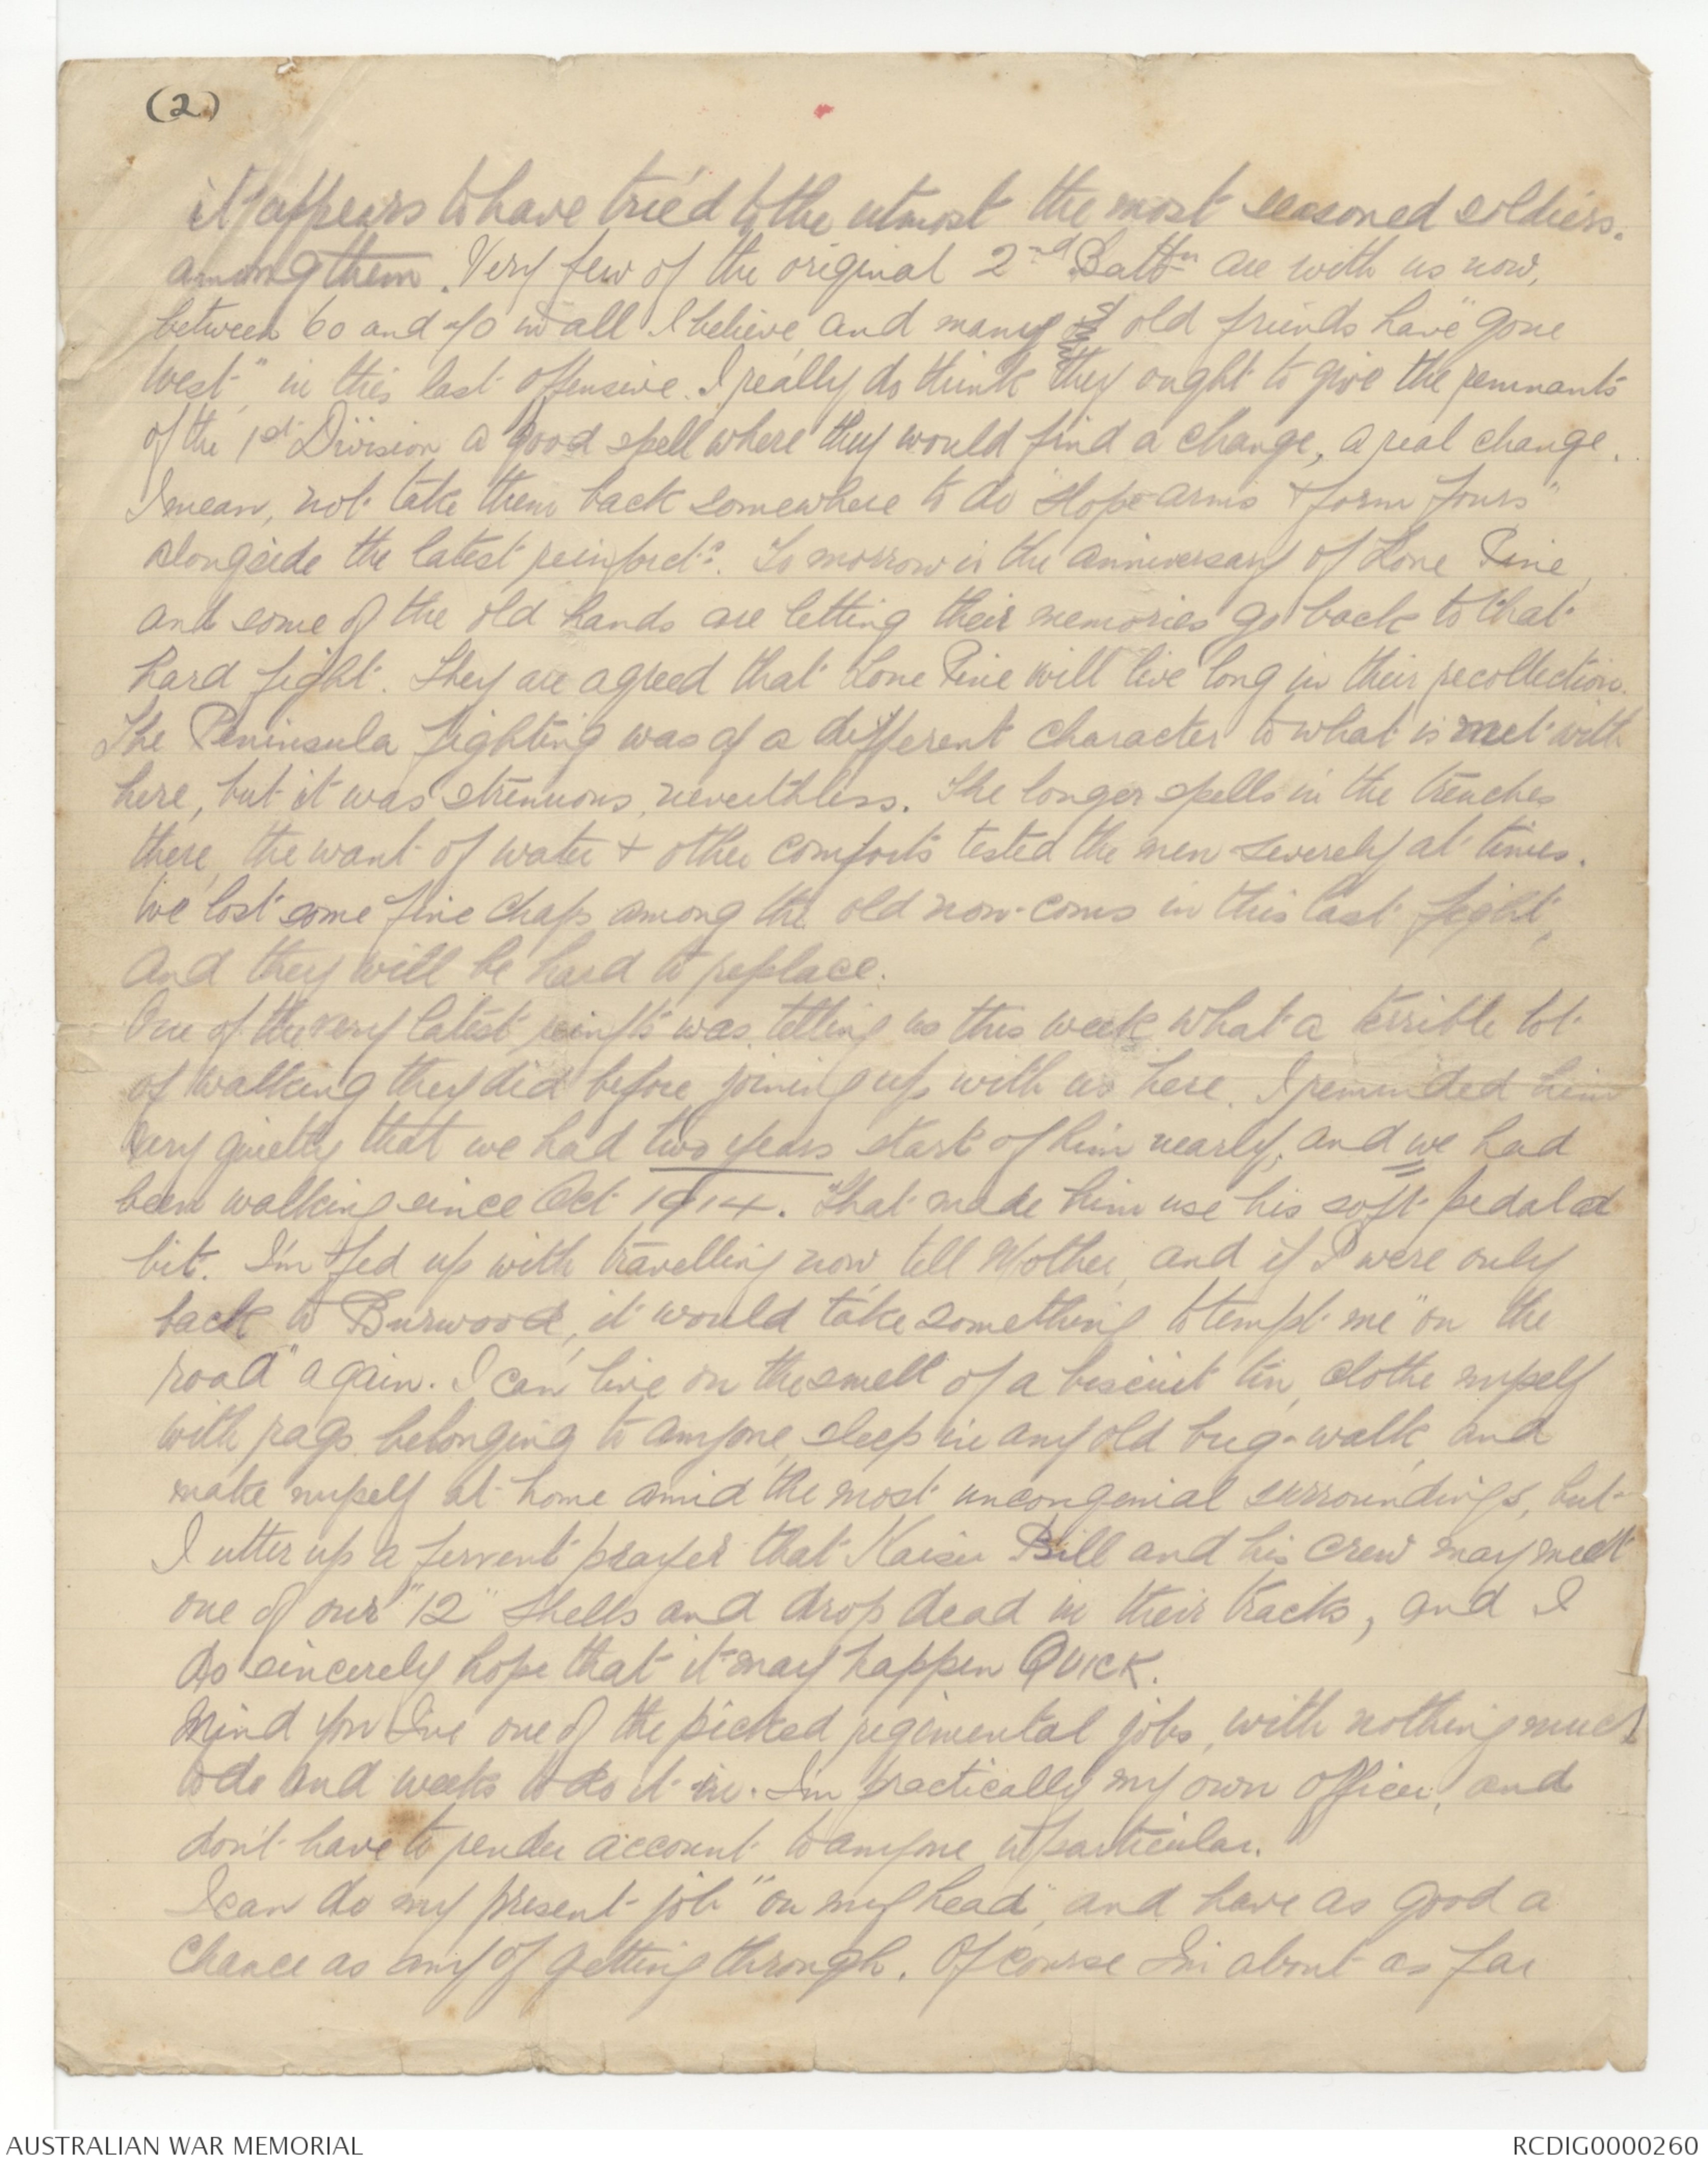 (2)
it appears to have tried to the utmost the most seasoned soldiers.
among them. Very few of the original 2nd Battn are with us now,
between 60 and 70 in all I believe, and many old friends have "gone
West" in this last offensive. I really do think they ought to give the remnants
of the 1st Division a good spell where they would find a change, a real change.
I mean, not take them back somewhere to do slope arms & form fours"
alongside the latest reinfocts. To morrow is the anniversary of Lone Pine,
and some of the old hands are letting their memories go back to that
hard fight. They are agreed that Lone Pine will live long in their recollection.
The Peninsula fighting was of a different character to what is met with
here, but it was strenuous, nevertheless. The longer spells in the trenches
there, the want of water & other comforts tested the men severely at times.
We lost some fine chaps among the old non-coms in this last fight,
and they will be hard to replace.
One of the very latest reinfts was telling us this week what a terrible lot
of walking they did before joining up with us here. I reminded him
very quietly that we had two years start of him nearly, and we had
been walking since Oct 1914. That made him use his soft pedal a
bit. I'm fed up with travelling now, tell Mother, and if I were only
back to Burwood, it would take something to tempt me "on the
road" again. I can live on the smell of a biscuit tin, clothe myself
with rags belonging to anyone, sleep in any old bug-walk, and
make myself at home amid the most uncongenial surroundings, but
I utter up a fervent prayer that Kaiser Bill and his crew may meet
one of our "12" shells and drop dead in their tracks, and I
do sincerely hope that it may happen QUICK.
Mind you I've one of the picked regimental jobs, with nothing much
to do and weeks to do it in. I'm practically my own officer, and
don't have to render account to anyone in particular.
I can do my present job "on my head", and have as good a
chance as any of getting through. Of course I'm about as far
AUSTRALIAN WAR MEMORIAL
RCDIG0000260